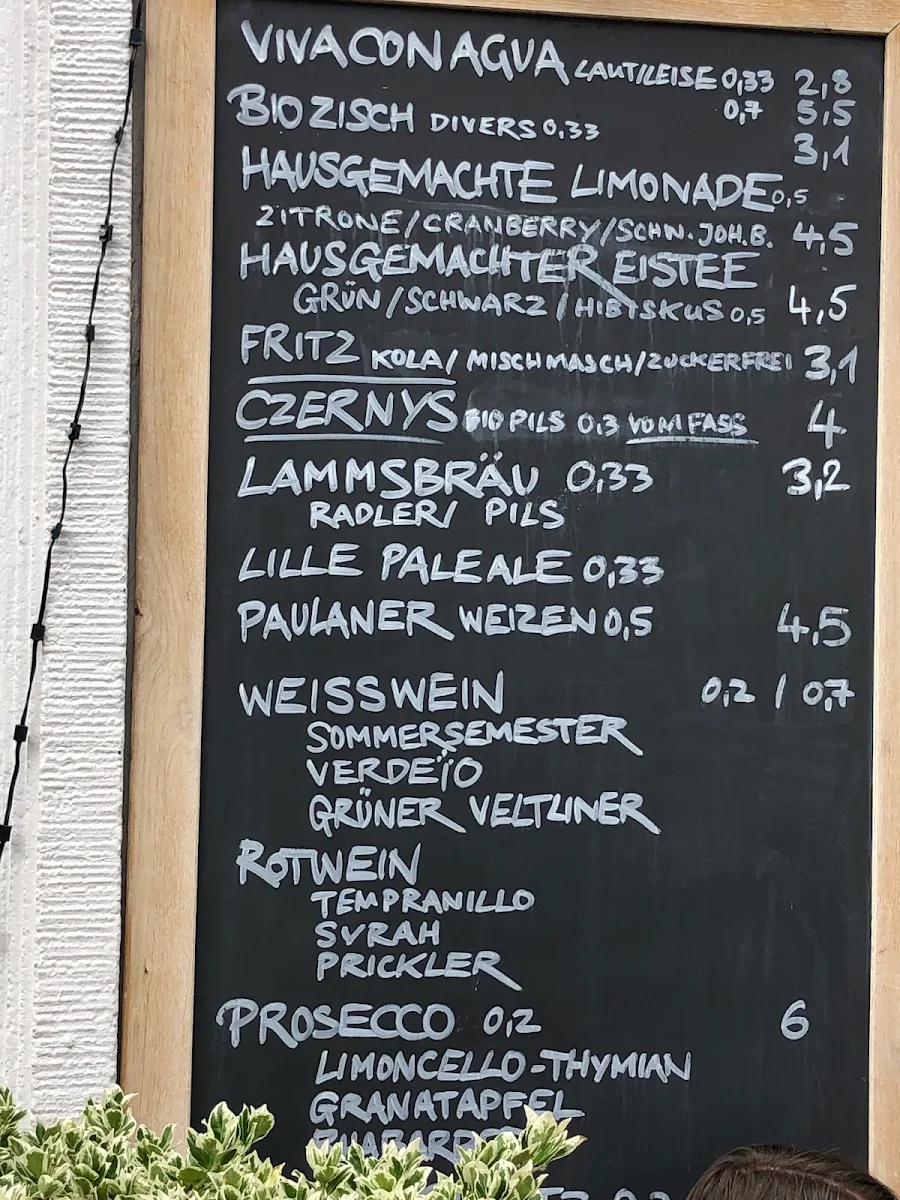 VIVA CON AGUA LAUT/LEISE 0,33 2,8
0,7 5,5
BIO ZISCH DIVERS 0,33 3,1
HAUSGEMACHTE LIMONADE 0,5
ZITRONE/CRANBERRY/SCHW.JOH.B. 4,5
HAUSGEMACHTER EISTEE
GRÜN/SCHWARZ/HIBISKUS 0,5 4,5
FRITZ KOLA/MISCHMASCH/ZUCKERFREI 3,1
CZERNYS BIO PILS 0,3 VOM FASS 4
LAMMSBRÄU 0,33 3,2
RADLER/ PILS
LILLE PALE ALE 0,33
PAULANER WEIZEN 0,5 4,5
WEISSWEIN 0,2 / 0,7
SOMMERSEMESTER
VERDEÏO
GRÜNER VELTLINER
ROTWEIN
TEMPRANILLO
SYRAH
PRICKLER
PROSECCO 0,2 6
LIMONCELLO-THYMIAN
GRANATAPFEL